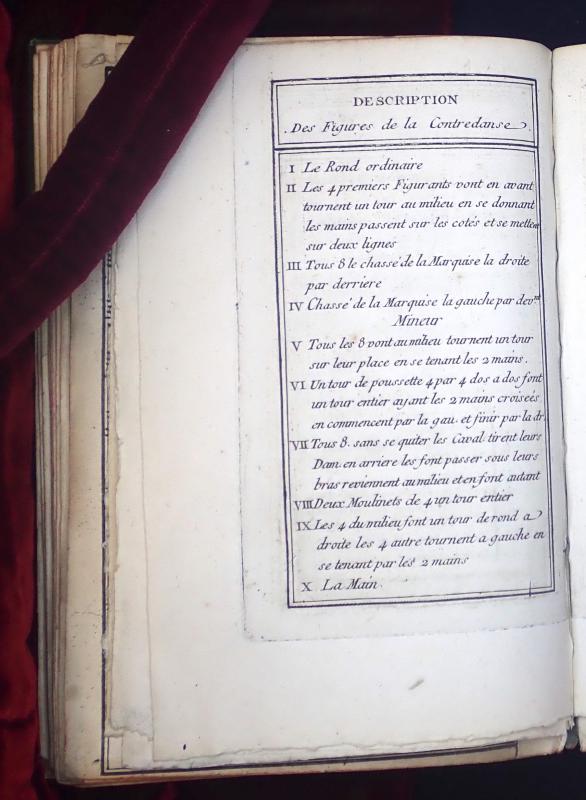 DESCRIPTION
Des Figures de la Contredanse.
I Le Rond ordinaire
II Les 4 premiers Figurants vont en avant
tournent un tour au milieu en se donnant
les mains passent sur les cotés et se metten
sur deux lignes
III Tous 8 le chassé de la Marquise la droite
par derriere
IV Chassé de la Marquise la gauche par devnt
Mineur
V Tous les 8 vont au milieu tournent un tour
sur leur place en se tenant les 2 mains.
VI Un tour de poussette 4 par 4 dos a dos font
un tour entier ayant les 2 mains croisées
en commencent par la gau. et finir par la dr.
VII Tous 8. sans se quiter les Caval. tirent leurs
Dam. en arriere les font passer sous leurs
bras reviennent au milieu et en font autant
VIII Deux Moulinets de 4 un tour entier
IX Les 4 du milieu font un tour de rond a
droite les 4 autre tournent a gauche en
se tenant par les 2 mains
X La Main.